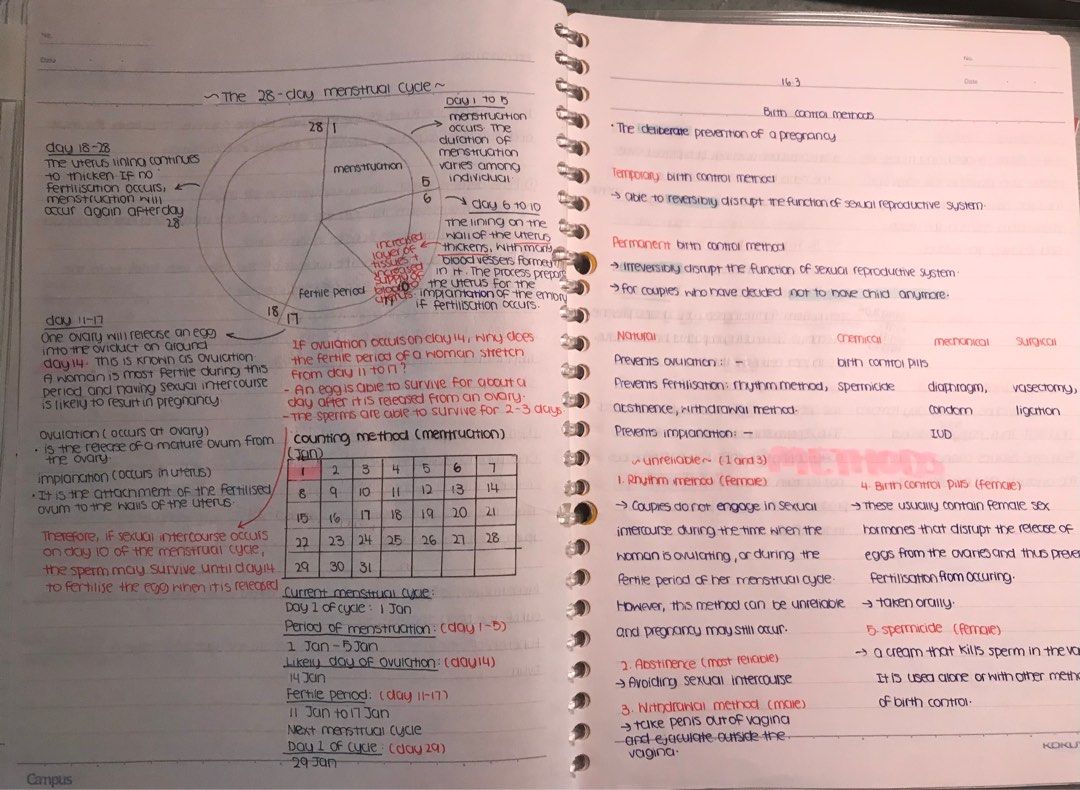 No.
Date
~The 28-day menstrual cycle~
28 1
menstruation
5
6
fertile period
10
11
18 17
Day 1 to 5
menstruation
occurs. The
duration of
menstruation
varies among
individual.
day 6 to 10
The lining on the
wall of the uterus
thickens, with many
blood vessels formed
in it. The process
the uterus for the
implantation of the
if fertilisation occurs.
increased
layer of
tissues +
increased
supply of
blood to
uterus
day 18-28
The uterus lining continues
to thicken. If no
fertilisation occurs,
menstruation will
occur again after day
28.
day 11-17
One ovary will release an egg
into the oviduct on around
day 14. This is known as ovulation
A woman is most fertile during this
period and having sexual intercourse
is likely to result in pregnancy.
ovulation (occurs at ovary)
• is the release of a mature ovum from
the ovary.
implantion (occurs in uterus)
• It is the attachment of the fertilised
ovum to the walls of the uterus.
Therefore, if sexual intercourse occurs
on day 10 of the menstrual cycle,
the sperm may survive until day 14
to fertilise the egg when it is released
If ovulation occurs on day 14, why does
the fertile period of a woman stretch
from day 11 to 17?
- An egg is able to survive for about a
day after it is released from an ovary.
- The sperms are able to survive for 2-3 days.
counting method (mentruation)
(Jan)
1 2 3 4 5 6 7
8 9 10 11 12 13 14
15 16 17 18 19 20 21
22 23 24 25 26 27 28
29 30 31
Current menstrual cycle:
Day 1 of cycle: 1 Jan
Period of menstruation: (day 1-5)
1 Jan - 5 Jan
Likely day of ovulation: (day 14)
14 Jan
Fertile period: (day 11-17)
11 Jan to 17 Jan
Next menstrual cycle
Day 1 of cycle: (day 29)
29 Jan
Campus
No.
Date
16.3
Birth control methods
• The deliberate prevention of a pregnancy
Temporary birth control method
→ able to reversibly disrupt the function of sexual reproductive system.
Permanent birth control method
→ irreversibly disrupt the function of sexual reproductive system.
→ for couples who have decided not to have child anymore.
Natural chemical mechanical surgical
Prevents ovulation: - birth control pills
Prevents fertilisation: rhythm method, spermicide diaphragm, vasectomy,
abstinence, withdrawal method. condom ligation
Prevents implanation: - IUD
~unreliable~ (1 and 3)
1. Rhythm method (female)
→ Couples do not engage in sexual
intercourse during the time when the
woman is ovulating, or during the
fertile period of her menstrual cycle.
However, this method can be unreliable
and pregnancy may still occur.
2. Abstinence (most reliable)
→ Avoiding sexual intercourse
3. Withdrawal method (male)
→ take penis out of vagina
and ejaculate outside the
vagina.
4. Birth control pills (female)
→ these usually contain female sex
hormones that disrupt the release of
eggs from the ovaries and thus
fertilisation from occuring.
→ taken orally.
5. spermicide (female)
→ a cream that kills sperm in the
It is used alone or with other
of birth control.